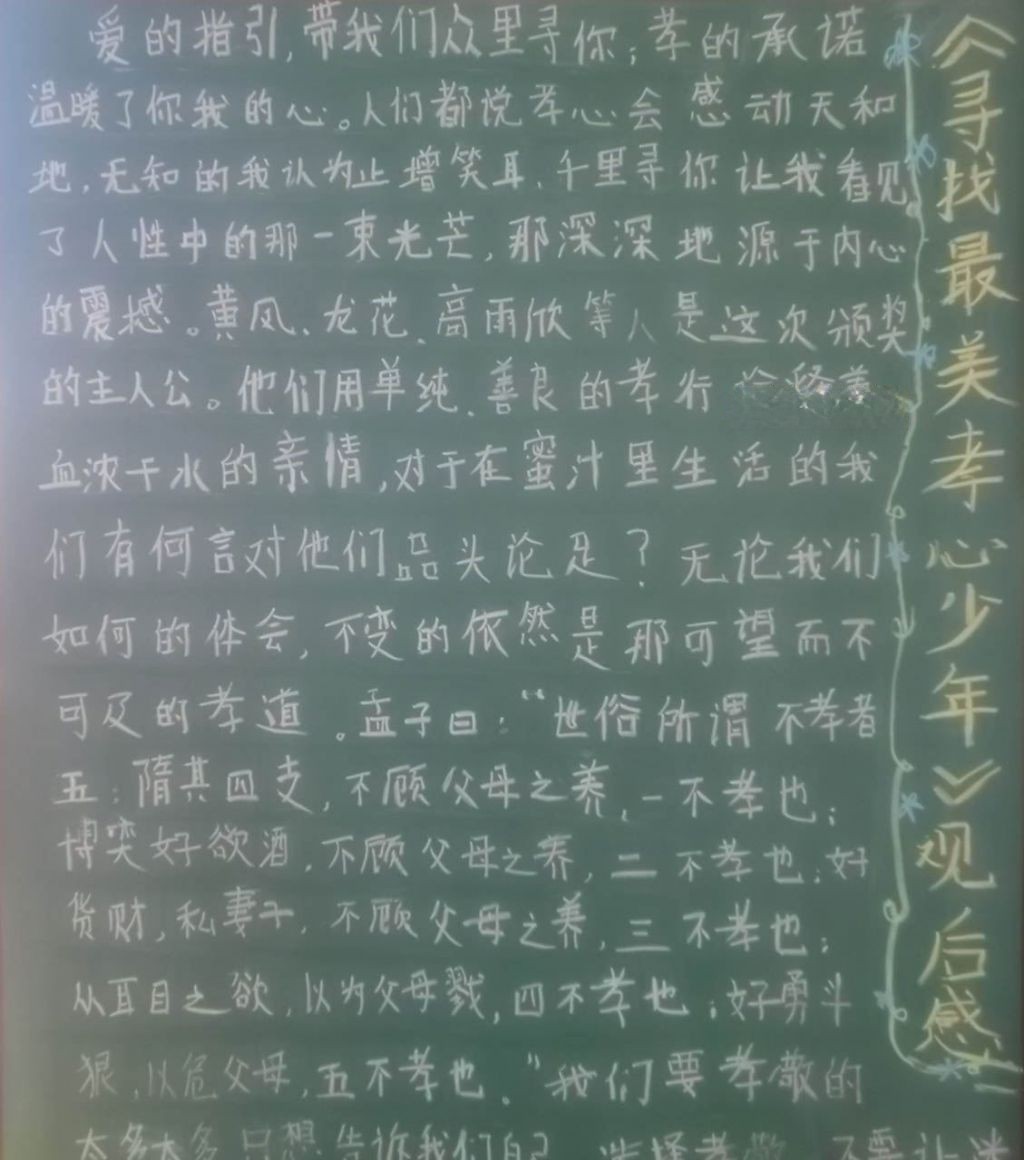 《寻找最美孝心少年》观后感
爱的指引，带我们众里寻你；孝的承诺
温暖了你我的心。人们都说孝心会感动天和
地，无知的我认为止增笑耳，千里寻你让我看见
了人性中的那一束光芒，那深深地源于内心
的震撼。黄凤、龙花、高雨欣等人是这次颁奖
的主人公。他们用单纯、善良的孝行
血浓于水的亲情，对于在蜜汁里生活的我
们有何言对他们品头论足？无论我们
如何的体会，不变的依然是那可望而不
可及的孝道。孟子曰：“世俗所谓不孝者
五：隋其四支，不顾父母之养，一不孝也；
博奕好欲酒，不顾父母之养，二不孝也；好
货财，私妻子，不顾父母之养，三不孝也；
从耳目之欲，以为父母戮，四不孝也；好勇斗
狠，以危父母，五不孝也。”我们要孝敬的
太多太多只想告诉我们自己 选择孝敬 不要让